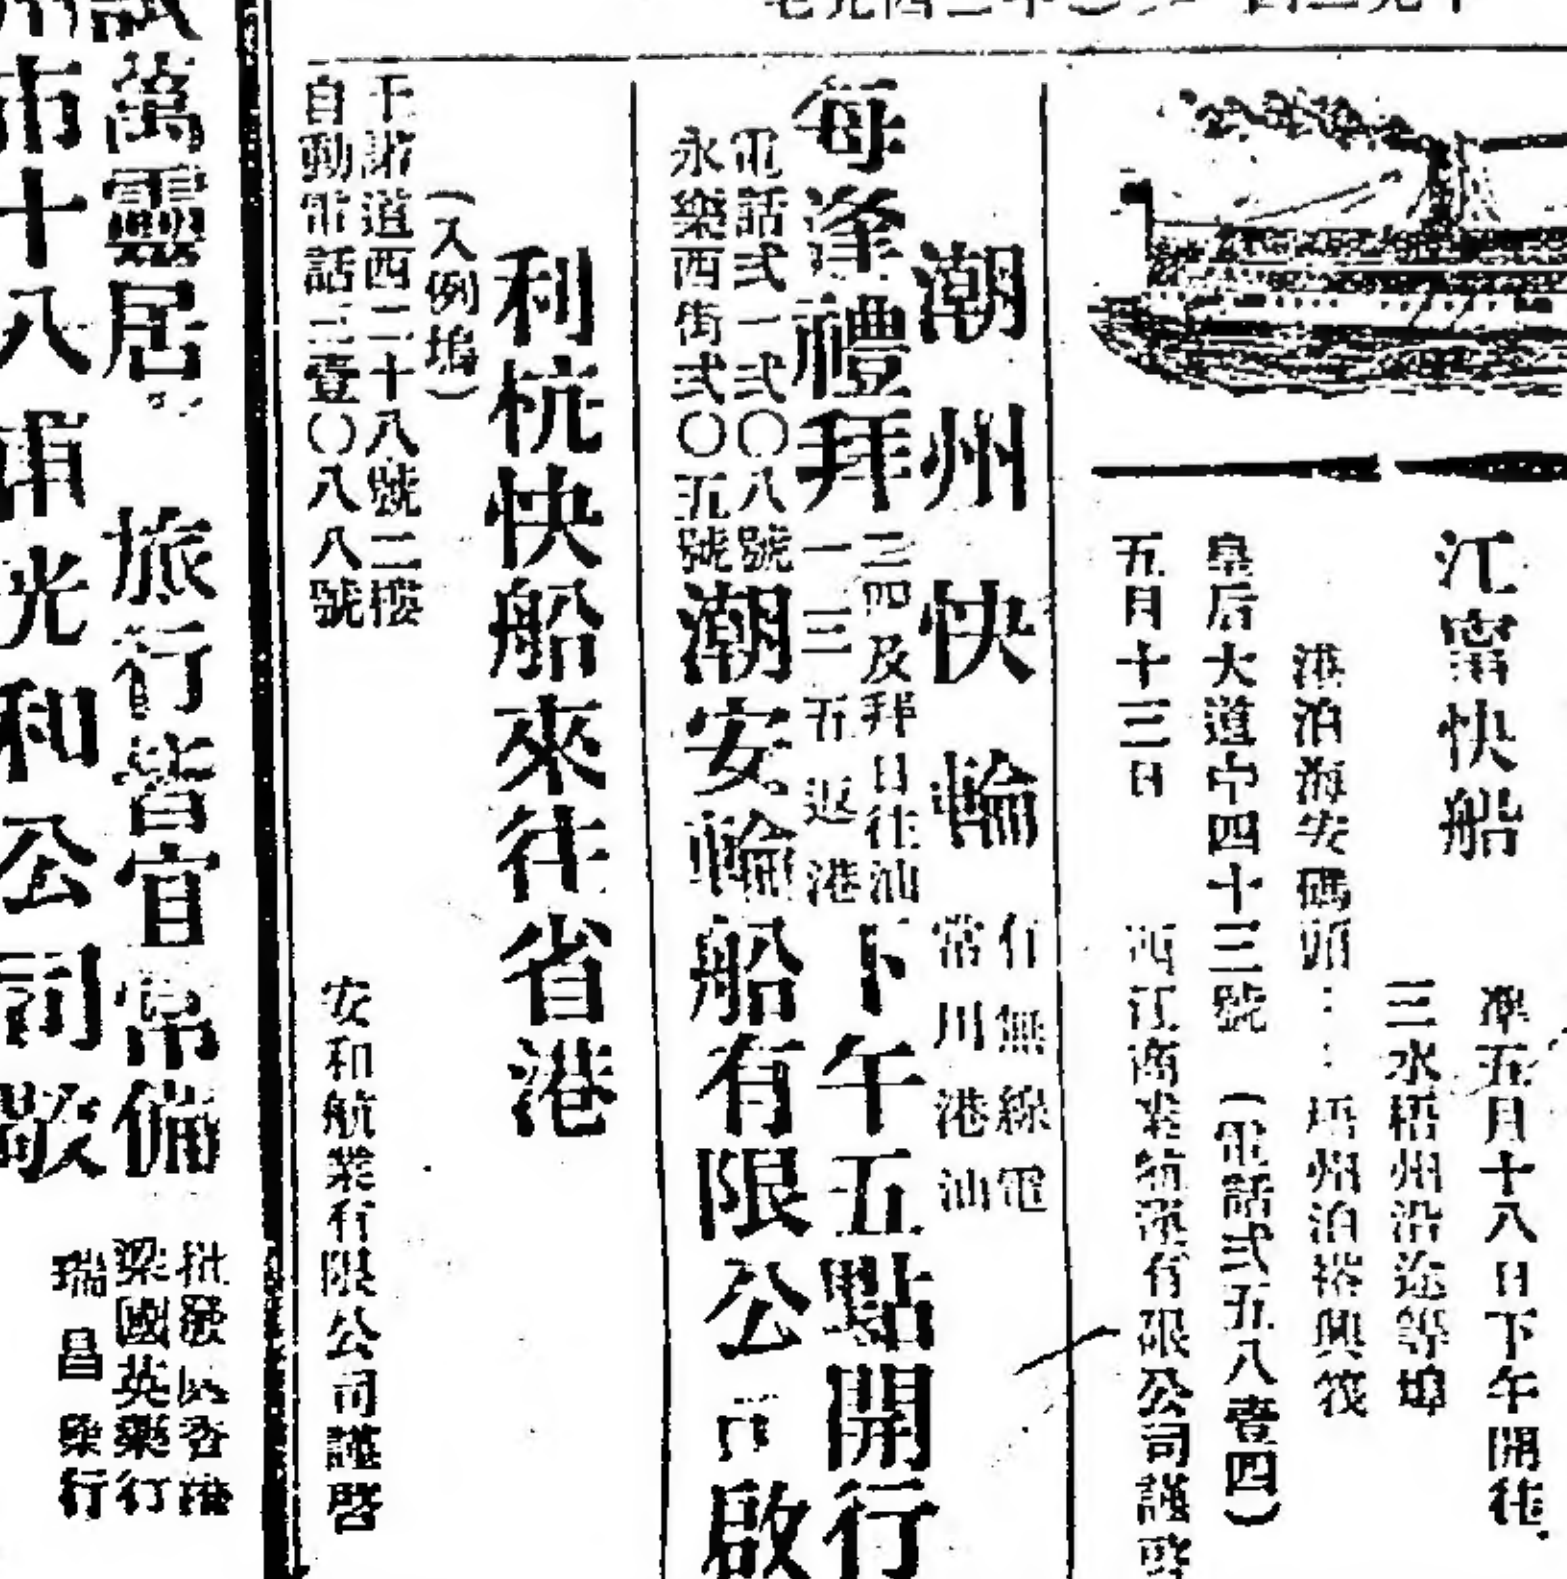 江寗快船
準五月十八日下午開往
三水梧州沿途等埠
港泊海安碼頭⋮⋮梧州泊 興筏
皇后大道中四十三號 (電話弍五八壹四)
五月十三日 西江商業航運有限公司謹啓
潮州快輪
有無線電
常川港汕
每逢禮拜
二四及拜日往汕
一三五返港
下午五點開行
電話弍一弍〇八號
永樂西街弍〇五號
潮安輪船有限公司啟
利杭快船來往省港
(入例塢)
干諾道西二十八號二樓
自動電話三壹〇八八號
安和航業有限公司謹啓
試萬靈居。旅行皆宜常備
批發處香港
梁國英藥行
市十八甫光和公司敬
瑞昌藥行